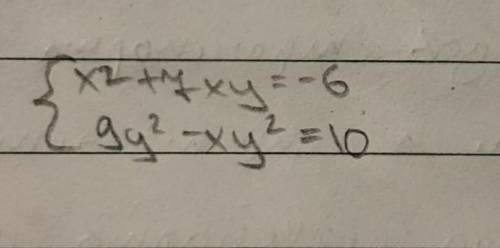 x2+7xy=-6
9y²-xy²=10